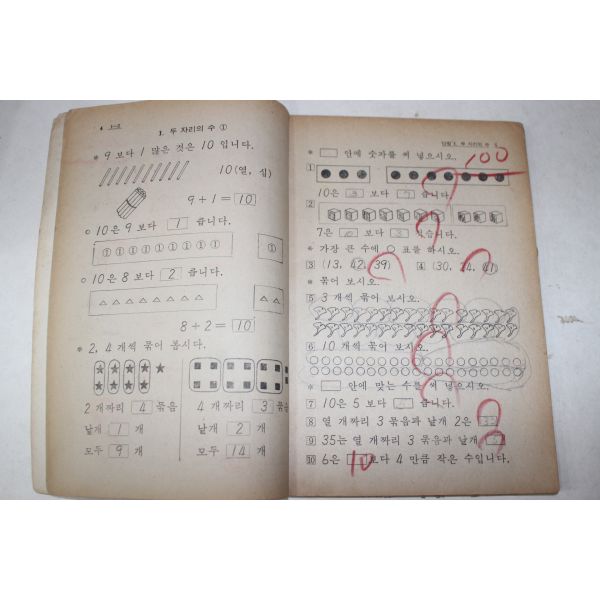 4 1-2
1. 두 자리의 수 ①
※ 9 보다 1 많은 것은 10 입니다.
10(열, 십)
9+1= 10
○ 10은 9 보다 1 큽니다.
① ① ① ① ① ① ① ① ① ①
○ 10은 8 보다 2 큽니다.
8+2= 10
※ 2, 4 개씩 묶어 봅시다.
2 개짜리 4 묶음
낱개 1 개
모두 9 개
4 개짜리 3 묶음
낱개 2 개
모두 14 개
1. 두 자리의 수 5
※ □ 안에 숫자를 써 넣으시오.
100
1
10은 3 보다 7 큽니다.
2
7은 10 보다 3 작습니다.
※ 가장 큰 수에 ○ 표를 하시오.
3 (13, 42, 39) 4 (30, 24, 41)
※ 묶어 보시오.
5 3 개씩 묶어 보시오.
6 10 개씩 묶어 보시오.
※ □ 안에 맞는 수를 써 넣으시오.
7 10은 5 보다 큽니다.
8 열 개짜리 3 묶음과 낱개 2은 32
9 35는 열 개짜리 3 묶음과 낱개
10 6은 10 보다 4 만큼 작은 수입니다.